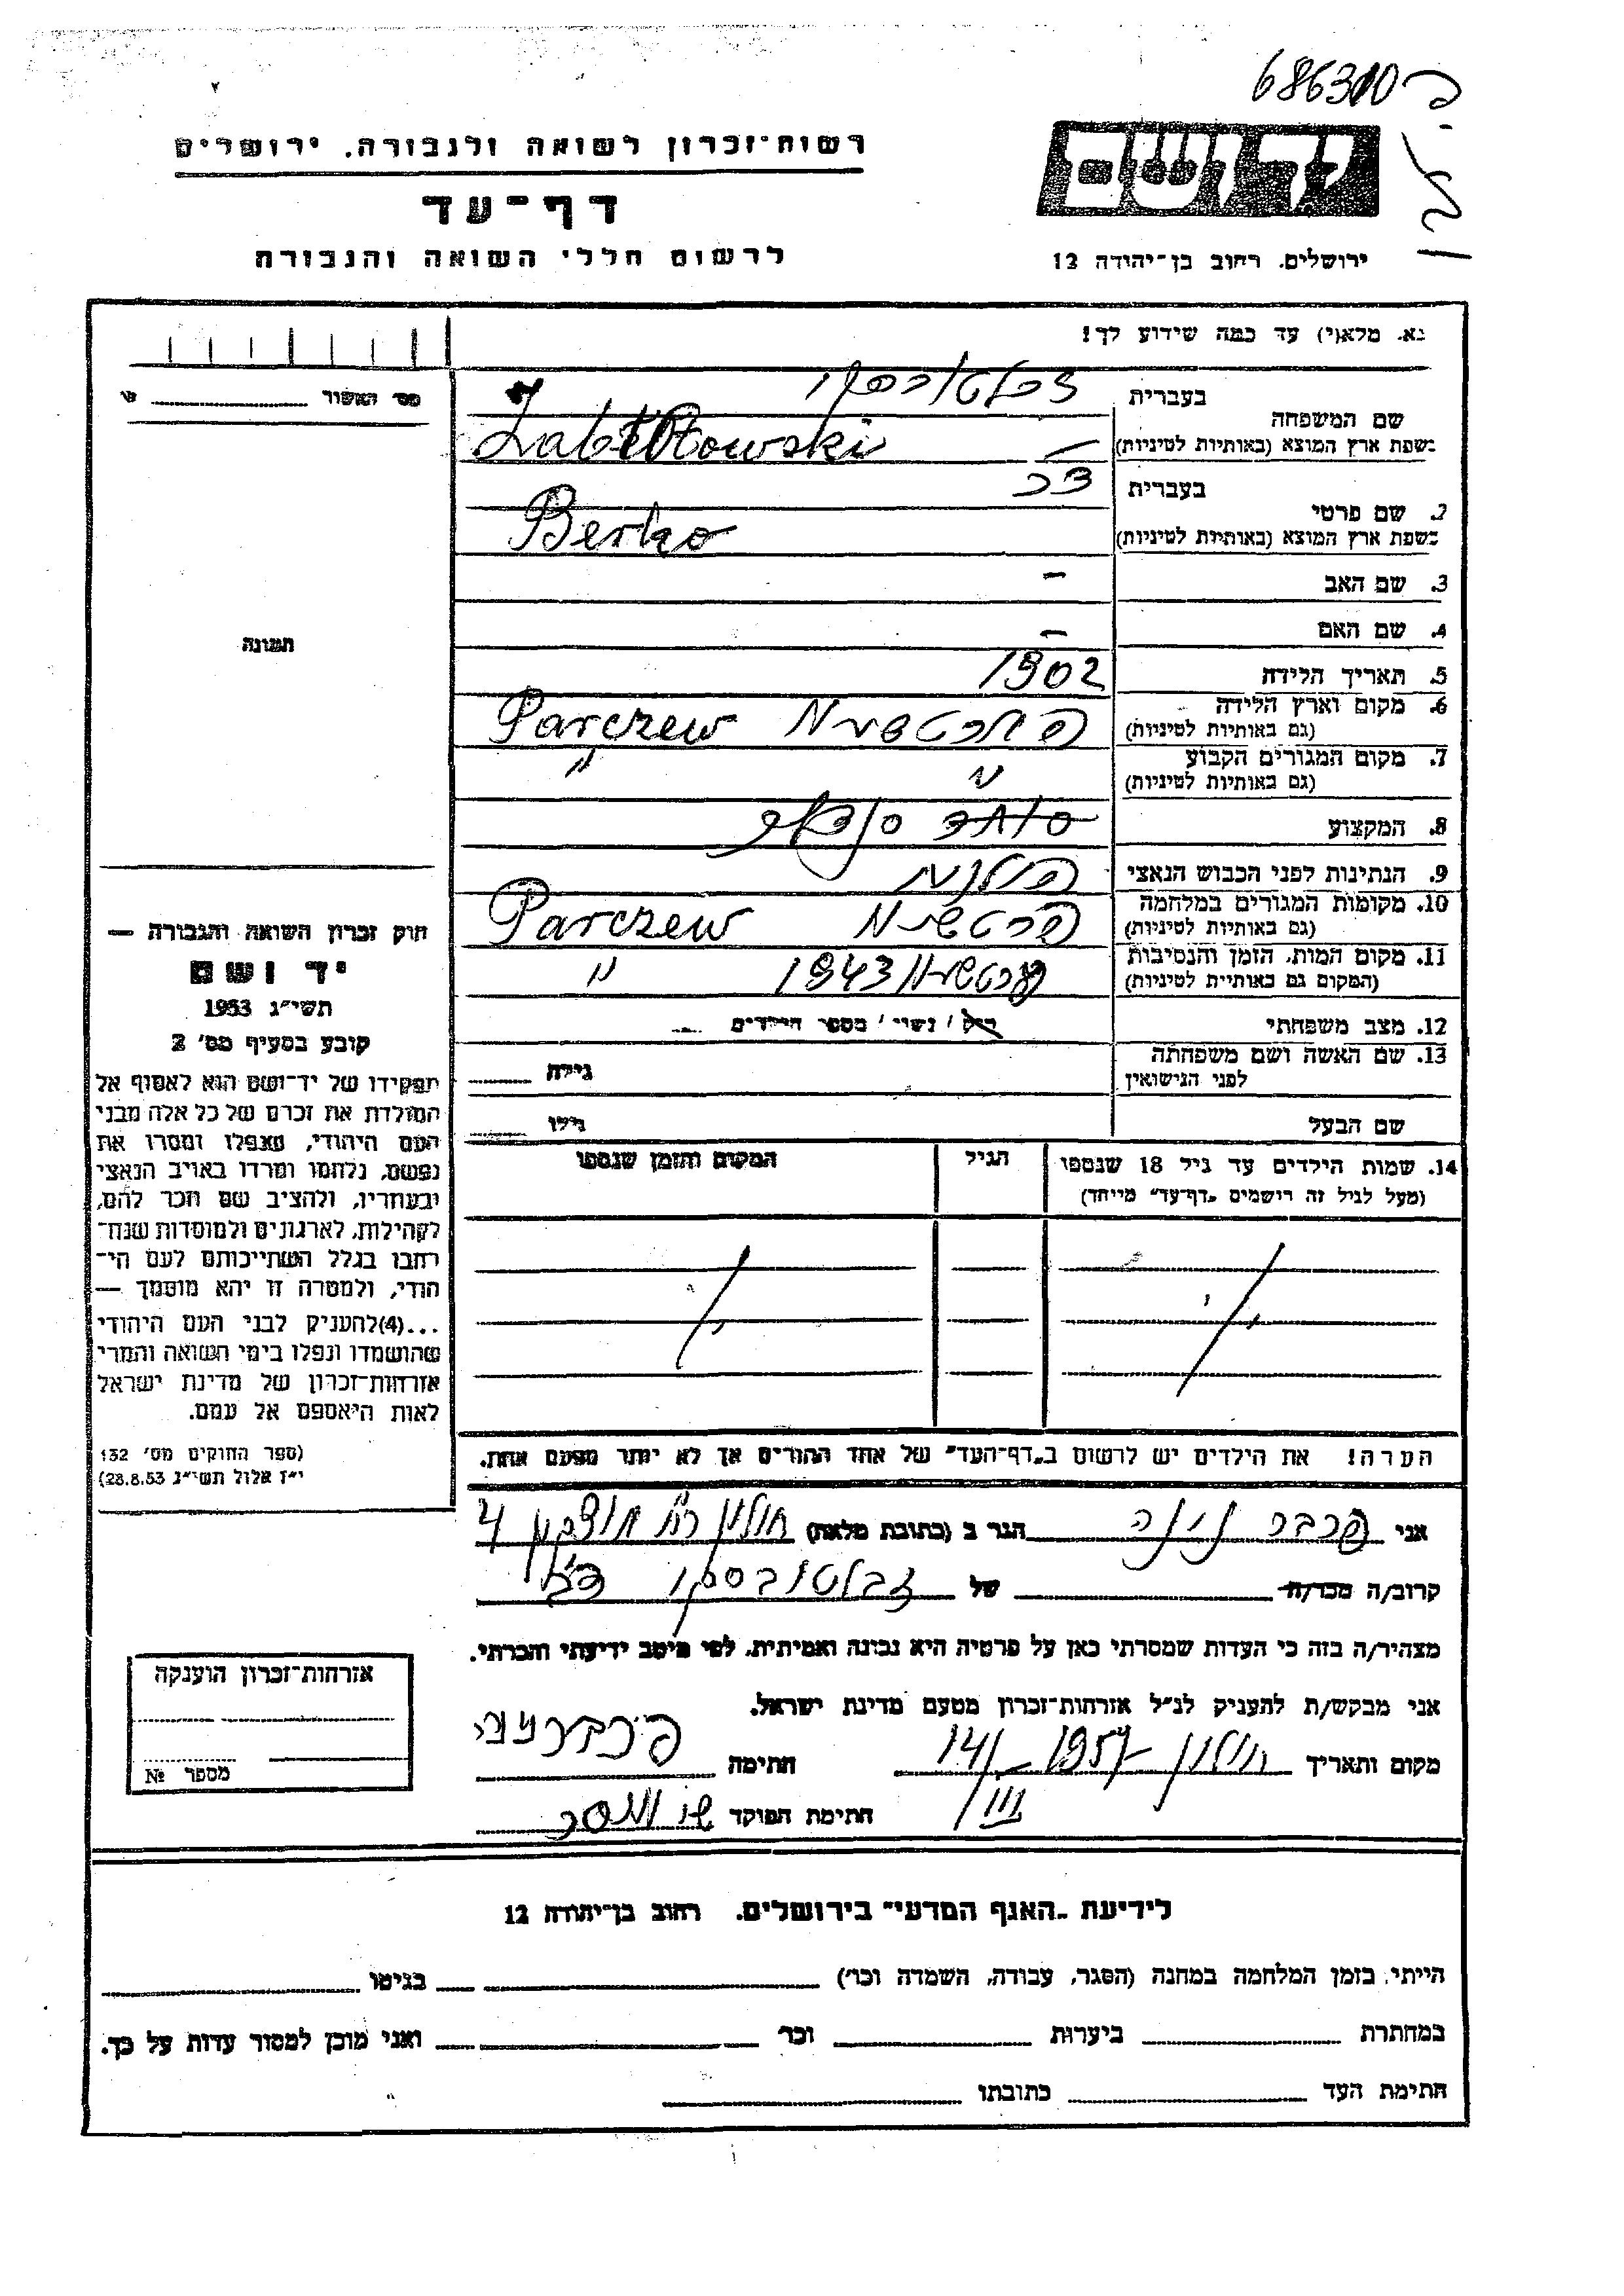 686310
רשות־זכרון לשואה ולגבורה. ירושלים
דף־עד
לרשום חללי השואה והגבורה
ידושם
ירושלים. רחוב בן־יהודה 12
נא. מלא(י) עד כמה שידוע לך!
מס׳ האשור
שם המשפחה
בעברית
זבלטובסקי
בשפת ארץ המוצא (באותיות לטיניות)
2. שם פרטי
בעברית
בשפת ארץ המוצא (באותיות לטיניות)
Berko
3. שם האב –
4. שם האם –
5. תאריך הלידה 1902
6. מקום וארץ הלידה
(גם באותיות לטיניות)
Parczew
7. מקום המגורים הקבוע
(גם באותיות לטיניות)
״ ״
8. המקצוע
9. הנתינות לפני הכבוש הנאצי פולנית
10. מקומות המגורים במלחמה
(גם באותיות לטיניות)
פרטשיב Parczew
11. מקום המות, הזמן והנסיבות
(המקום גם באותיות לטיניות)
1943 ״
12. מצב משפחתי
רוק / נשוי / מספר הילדים
13. שם האשה ושם משפחתה
לפני הנישואין
גילה
שם הבעל
גילו
14. שמות הילדים עד גיל 18 שנספו
(מעל לגיל זה רושמים „דף־עד״ מיוחד)
הגיל
המקום והזמן שנספו
הערה! את הילדים יש לרשום ב„דף־העד״ של אחד ההורים אך לא יותר מפעם אחת.
תמונה
חוק זכרון השואה והגבורה —
יד ושם
תשי״ג 1953
קובע בסעיף מס׳ 2
תפקידו של יד־ושם הוא לאסוף אל
המולדת את זכרם של כל אלה מבני
העם היהודי, שנפלו ומסרו את
נפשם, נלחמו ומרדו באויב הנאצי
ובעוזריו, ולהציב שם וזכר להם,
לקהילות, לארגונים ולמוסדות שנח־
רבו בגלל השתייכותם לעם הי־
הודי, ולמטרה זו יהא מוסמך —
...(4)להעניק לבני העם היהודי
שהושמדו ונפלו בימי השואה והמרי
אזרחות־זכרון של מדינת ישראל
לאות היאספם אל עמם.
(ספר החוקים מס׳ 132
י״ז אלול תשי״ג 28.8.53)
אני פרבר הגר ב (כתובת מלאה) חולון 4
קרוב/ה מכר/ה של זבלטובסקי
מצהיר/ה בזה כי העדות שמסרתי כאן על פרטיה היא נכונה ואמיתית, לפי מיטב ידיעתי והכרתי.
אני מבקש/ת להעניק לנ״ל אזרחות־זכרון מטעם מדינת ישראל.
מקום ותאריך חולון 14/III 1957 חתימה
חתימת הפוקד
אזרחות־זכרון הוענקה
מספר №
לידיעת „האגף המדעי״ בירושלים. רחוב בן־יהודה 12
הייתי בזמן המלחמה במחנה (הסגר, עבודה, השמדה וכו׳) בגיטו
במחתרת ביערות וכו׳ ואני מוכן למסור עדות על כך.
חתימת העד כתובתו